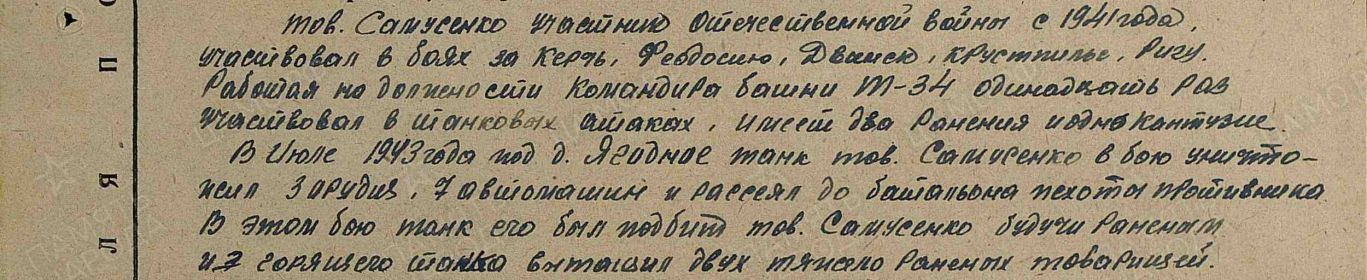 тов. Самусенко участник отечественной войны с 1941 года,
участвовал в боях за Керчь, Феодосию, Двинск, Крустпилс, Ригу.
Работая на должности командира башни Т-34 одинадцать раз
участвовал в танковых атаках, имеет два ранения и одно кантузие.
В июле 1943 года под д. Ягодное танк тов. Самусенко в бою уничто-
жил 3 орудия, 7 автомашин и рассеял до батальона пехоты противника
В этом бою танк его был подбит тов. Самусенко будучи раненым
из горящего танка вытащил двух тяжело раненых товарищей.
П
Л Я